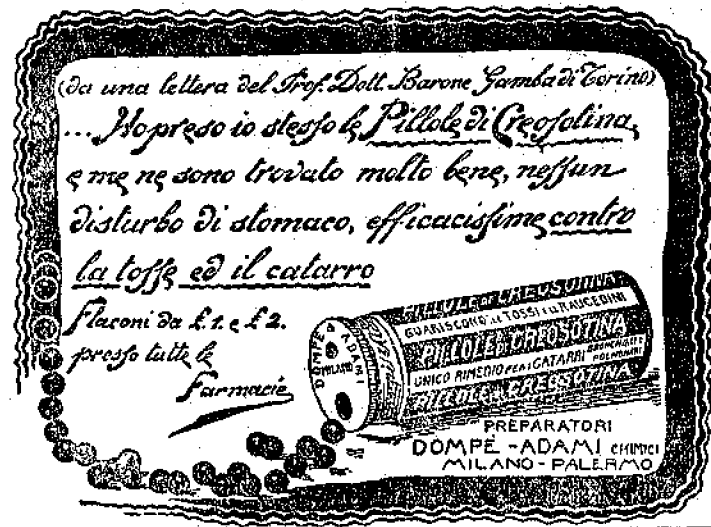 (da una lettera del Prof. Dott. Barone Gamba di Torino)
... Ho preso io stesso le Pillole di Creosotina,
e me ne sono trovato molto bene, nessun
disturbo di stomaco, efficacissime contro
la tosse ed il catarro
Flaconi da £.1. e £2.
presso tutte le
Farmacie
PILLOLE DI CREOSOTINA
GUARISCONO LE TOSSI E LE RAUCEDINI
PILLOLE DI CREOSOTINA
UNICO RIMEDIO PER I CATARRI BRONCHIALI E POLMONARI
PILLOLE DI CREOSOTINA
DOMPÉ ADAMI
MILANO
PREPARATORI
DOMPÉ - ADAMI CHIMICI
MILANO - PALERMO